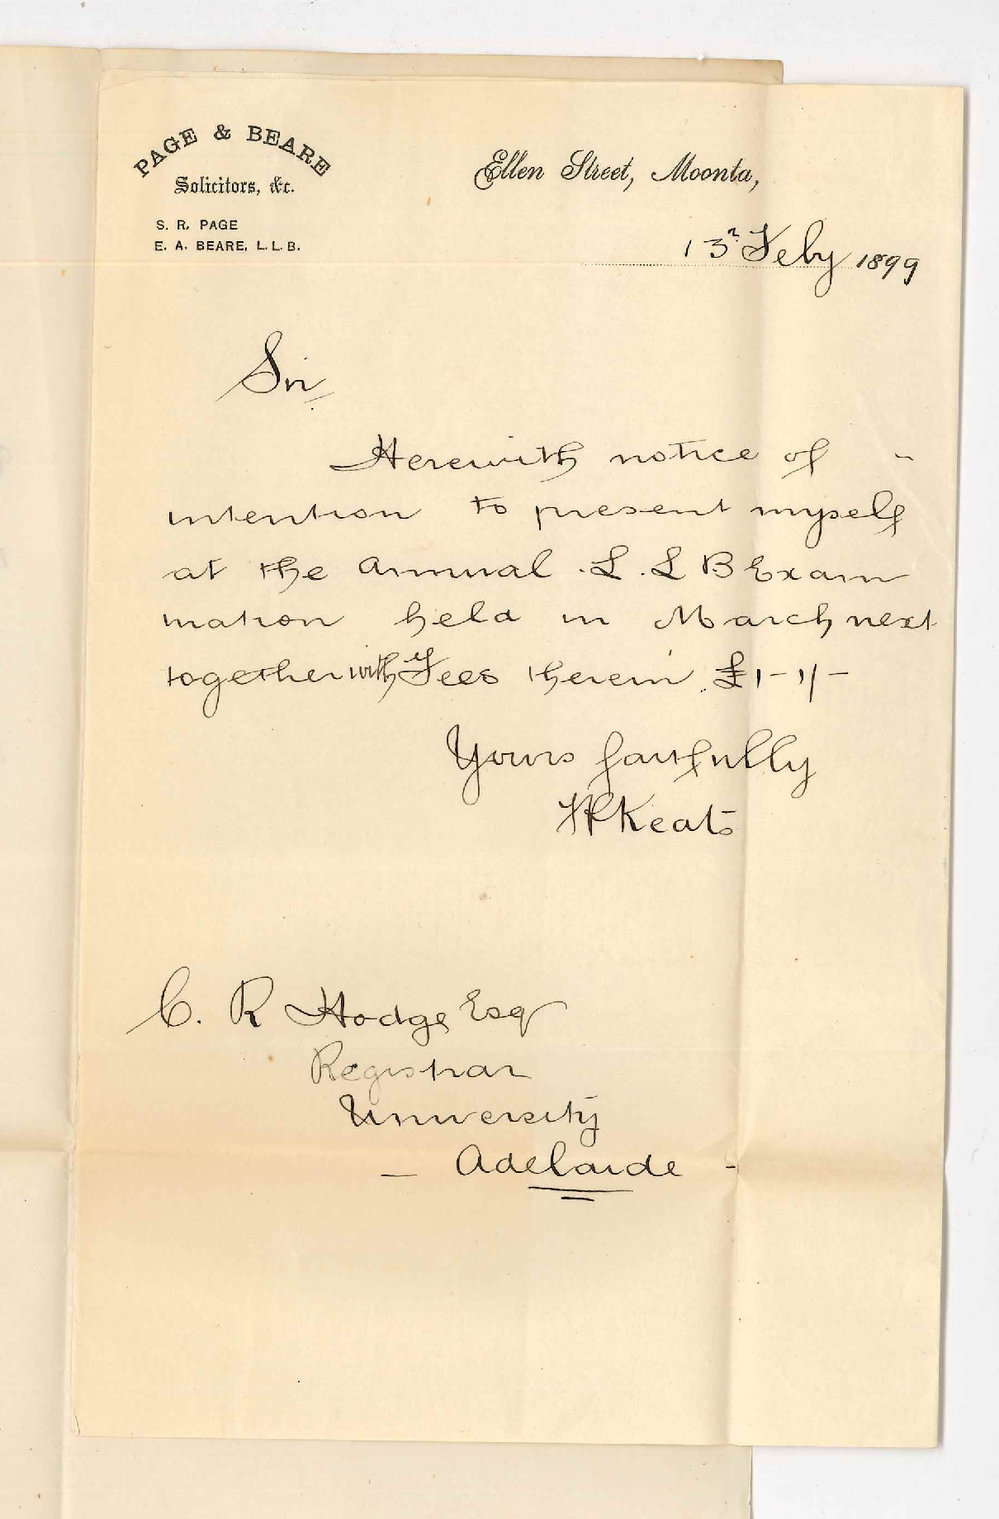 PAGE & BEARE
Solicitors, &c.
S. R. PAGE
E. A. BEARE, L.L.B.
Ellen Street, Moonta,
13 Feby 1899
Sir
Herewith notice of
intention to present myself
at the annual L. L B Exam
ination held in March next
together with Fees therein £1-1/-
Yours faithfully
Keats
C. R Hodge Esq
Registrar
University
- Adelaide -